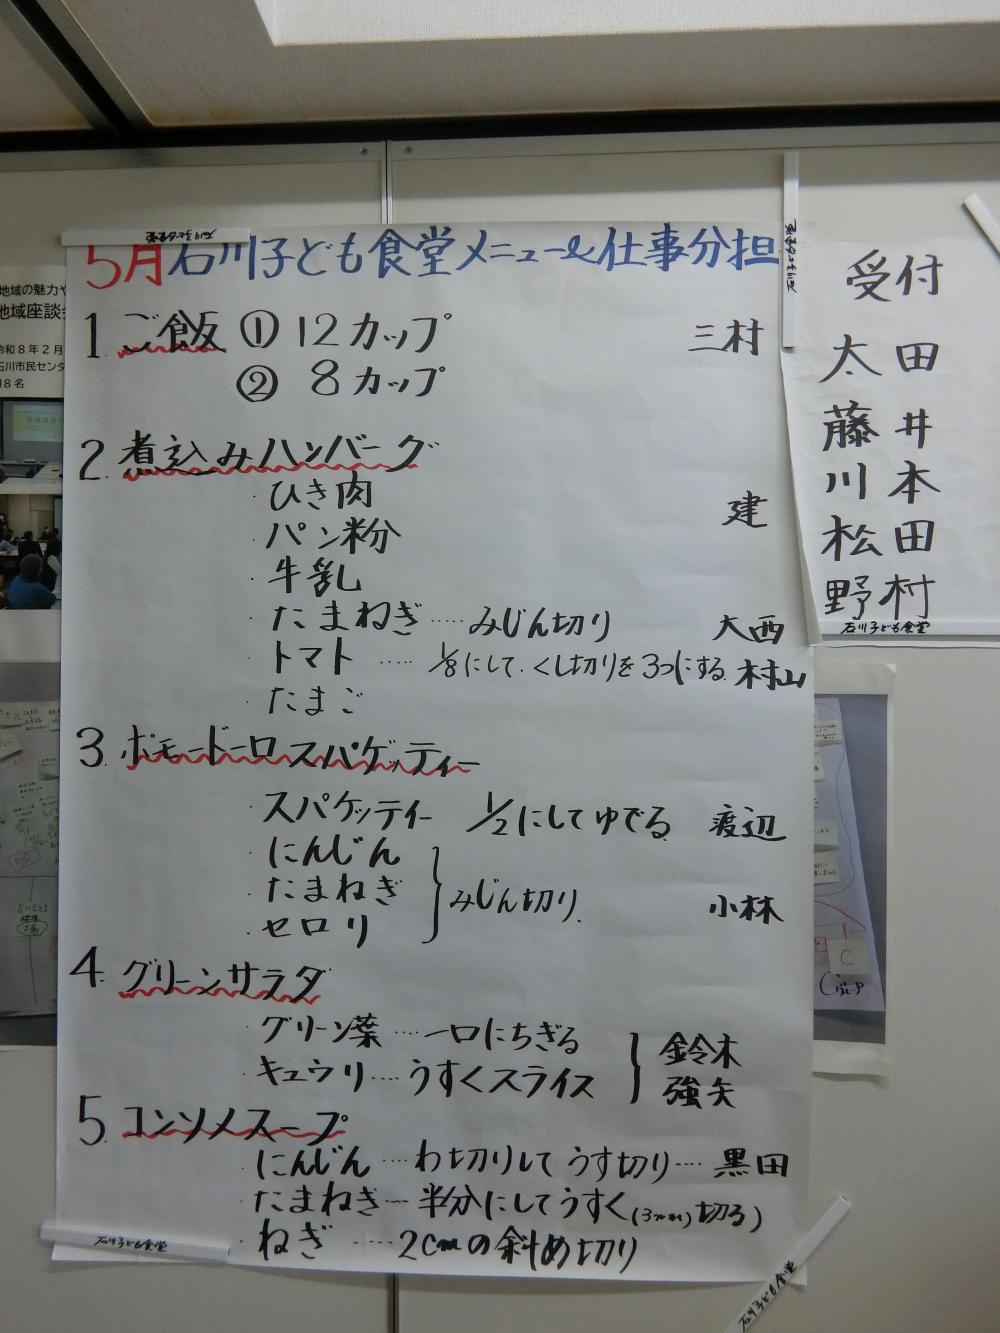 石川子ども食堂
5月石川子ども食堂メニュー&仕事分担
1. ご飯 ① 12カップ 三村
② 8カップ
2. 煮込みハンバーグ
・ひき肉
・パン粉 建
・牛乳
・たまねぎ……みじん切り 大西
・トマト …… 1/8にして、くし切りを3つにする 村山
・たまご
3. ポモードーロスパゲッティー
・スパゲッティー 1/2にしてゆでる 渡辺
・にんじん
・たまねぎ } みじん切り 小林
・セロリ
4. グリーンサラダ
・グリーン葉 …… 一口にちぎる } 鈴木
・キュウリ …… うすくスライス 強矢
5. コンソメスープ
・にんじん …… わ切りして うす切り …… 黒田
・たまねぎ … 半分にしてうすく(3mm)切る)
・ねぎ …… 2cmの斜め切り
石川子ども食堂
石川子ども食堂
石川子ども食堂
受付
太田
藤井
川本
松田
野村
石川子ども食堂
地域の魅力や
地域座談会
令和8年2月
石川市民センタ
18名
C